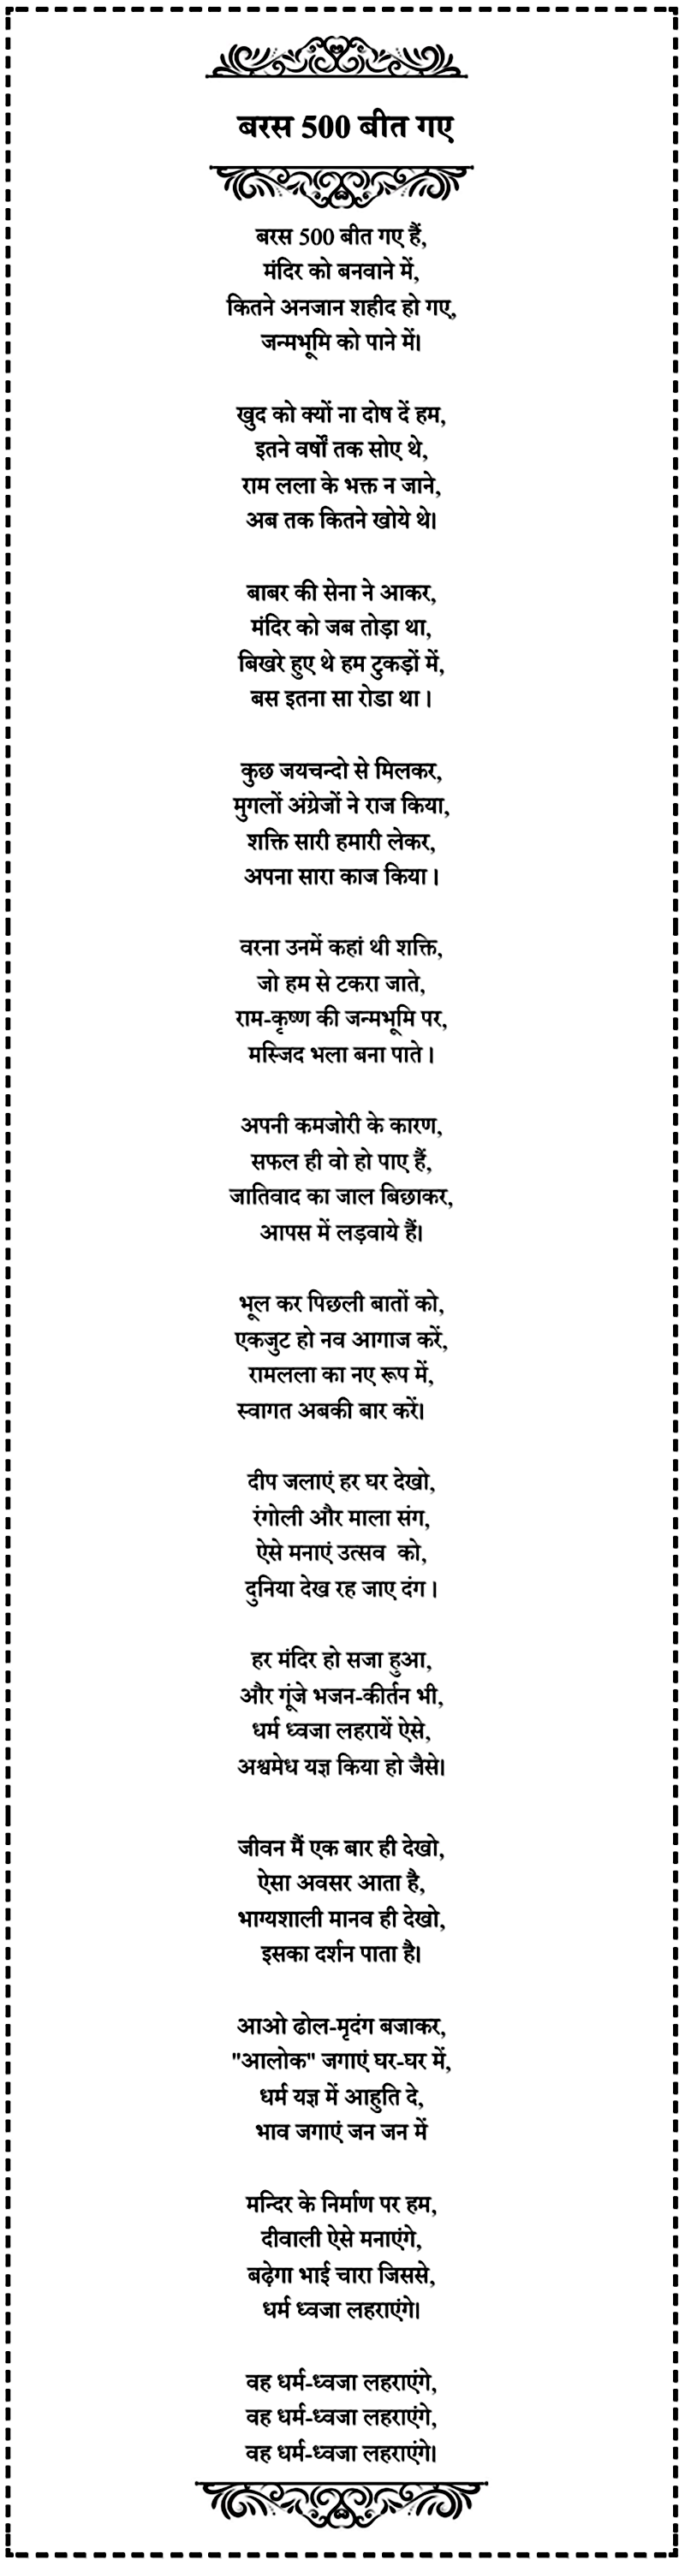 बरस 500 बीत गए
बरस 500 बीत गए हैं,
मंदिर को बनवाने में,
कितने अनजान शहीद हो गए,
जन्मभूमि को पाने में।
खुद को क्यों ना दोष दें हम,
इतने वर्षों तक सोए थे,
राम लला के भक्त न जाने,
अब तक कितने खोये थे।
बाबर की सेना ने आकर,
मंदिर को जब तोड़ा था,
बिखरे हुए थे हम टुकड़ों में,
बस इतना सा रोडा था ।
कुछ जयचन्दो से मिलकर,
मुगलों अंग्रेजों ने राज किया,
शक्ति सारी हमारी लेकर,
अपना सारा काज किया ।
वरना उनमें कहां थी शक्ति,
जो हम से टकरा जाते,
राम-कृष्ण की जन्मभूमि पर,
मस्जिद भला बना पाते ।
अपनी कमजोरी के कारण,
सफल ही वो हो पाए हैं,
जातिवाद का जाल बिछाकर,
आपस में लड़वाये हैं।
भूल कर पिछली बातों को,
एकजुट हो नव आगाज करें,
रामलला का नए रूप में,
स्वागत अबकी बार करें।
दीप जलाएं हर घर देखो,
रंगोली और माला संग,
ऐसे मनाएं उत्सव  को,
दुनिया देख रह जाए दंग ।
हर मंदिर हो सजा हुआ,
और गूंजे भजन-कीर्तन भी,
धर्म ध्वजा लहरायें ऐसे,
अश्वमेध यज्ञ किया हो जैसे।
जीवन मैं एक बार ही देखो,
ऐसा अवसर आता है,
भाग्यशाली मानव ही देखो,
इसका दर्शन पाता है।
आओ ढोल-मृदंग बजाकर,
"आलोक" जगाएं घर-घर में,
धर्म यज्ञ में आहुति दे,
भाव जगाएं जन जन में
मन्दिर के निर्माण पर हम,
दीवाली ऐसे मनाएंगे,
बढ़ेगा भाई चारा जिससे,
धर्म ध्वजा लहराएंगे।
वह धर्म-ध्वजा लहराएंगे,
वह धर्म-ध्वजा लहराएंगे,
वह धर्म-ध्वजा लहराएंगे।